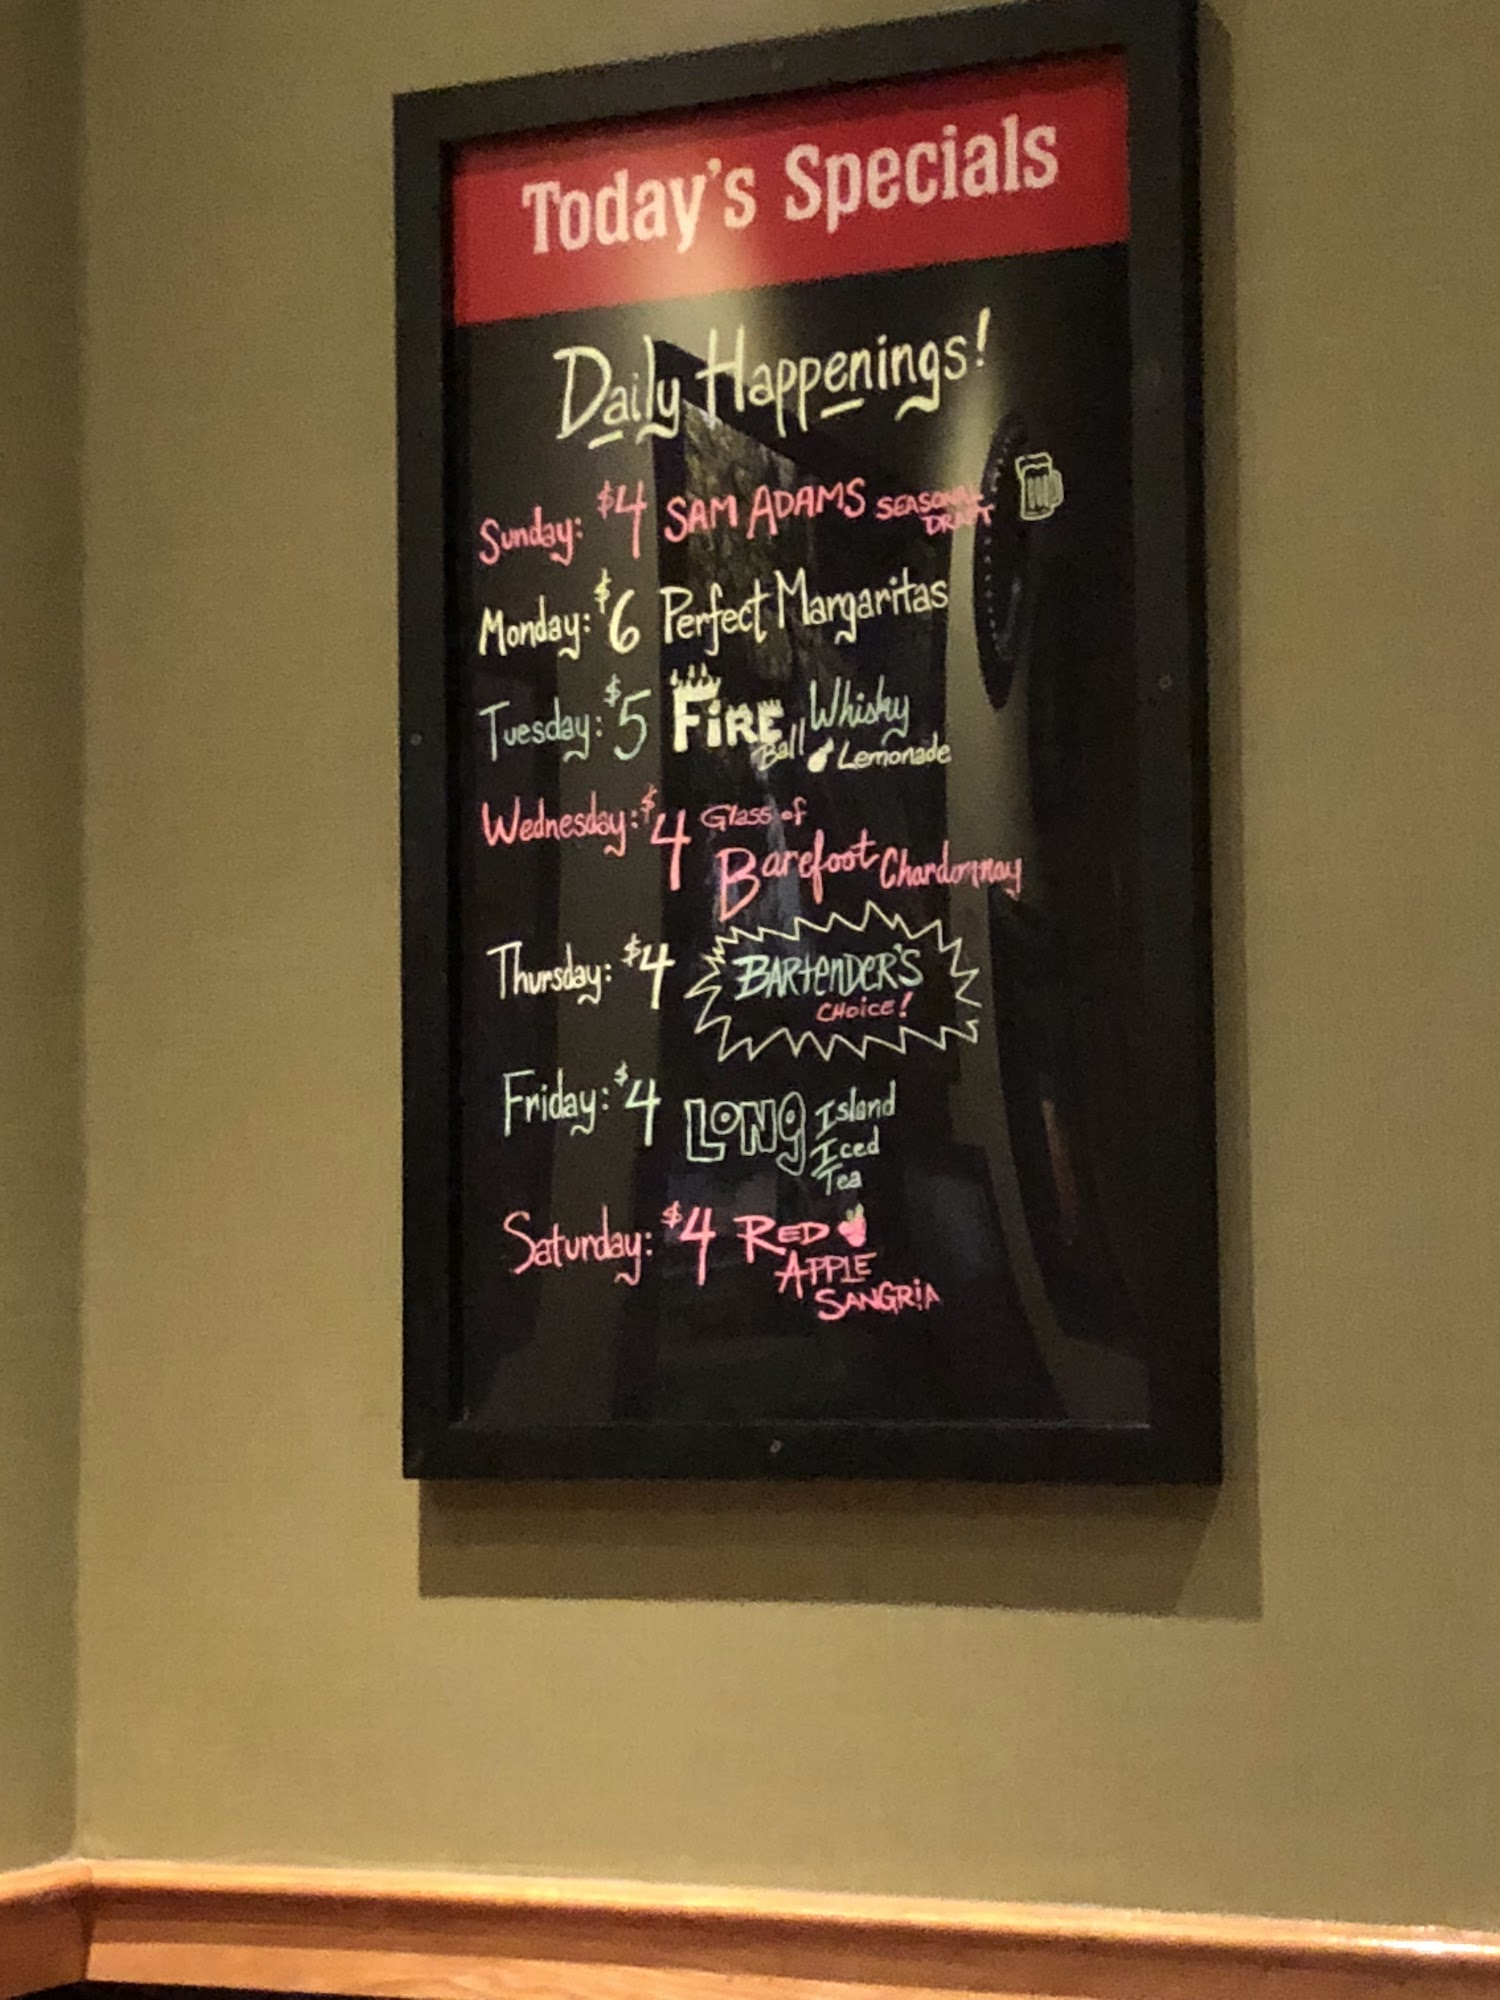 Today's Specials
Daily Happenings!
Sunday: $4 SAM ADAMS SEASONAL DRAFT
Monday: $6 Perfect Margaritas
Tuesday: $5 FIRE Ball Whisky Lemonade
Wednesday: $4 Glass of
Barefoot Chardonnay
Thursday: $4 BARTENDER'S
CHOICE!
Friday: $4 LONG Island
Iced
Tea
Saturday: $4 RED
APPLE
SANGRIA